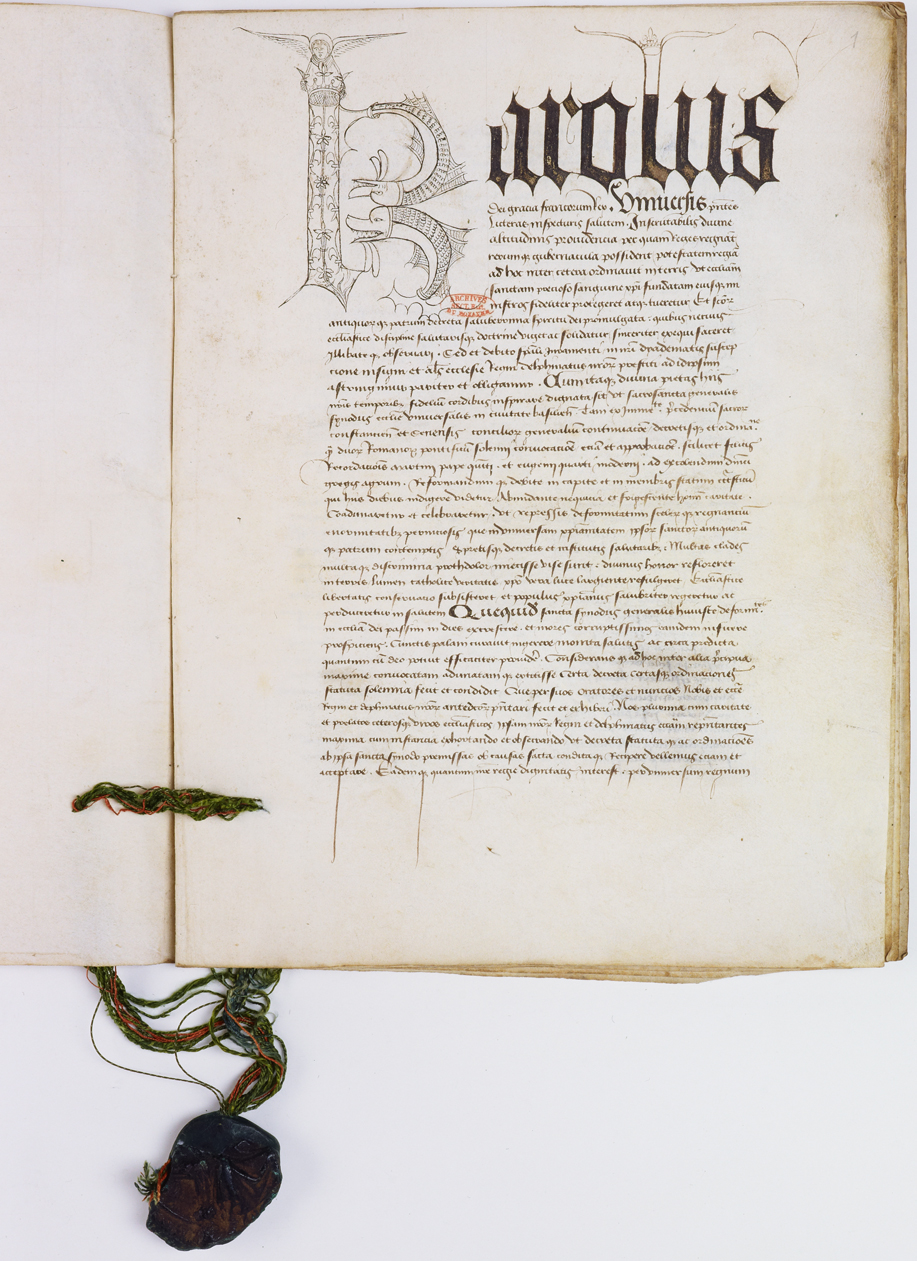 1
Karolus
Dei gracia francorum Rex Vniuersis pñtes
Literas inspecturis salutem. Inscrutabilis diuine
altitudinis prouidencia per quam Reges regnãt
rerumq gubernacula possident potestatem regiã
ad hoc inter cetera ordinauit in terris vt eccliam
sanctam precioso sanguine xpi fundatam eiusq mi
nistros fideliter protegeret atq tueretur Et scõr
ARCHIVES
SECT. HIS.
DU ROYAUME
antiquor q patrum decreta saluberrima spiritu dei promulgata quibus neruus
eccliastice discipline salutarisq doctrine viget ac solidatur sinceriter exequi faceret
illibate q obseruari. Sed et debito Iuramenti in nri dyadematis suscep
cione insigni et als ecclesie Regni delphinatus nror prestiti ad idipsum
astringimur pariter et obligamur. Cumitaq diuina pietas hiis
nris temporibz fidelium cordibus inspirare dignata sit vt sacrosancta generalis
synodus ecclie vniuersalis in ciuitate basilien. Tam ex precedencium sacror
constancien et Senensis concilior generalium continuacõe decretisq et ordinac
q duor Romanor pontificum solemni conuocacõe eciam et approbacõe. scilicet felicis
Recordacionis martini pape quinti. et eugenii quarti moderni. ad excolendum dnici
gregis agrum. Reformandum q debite in capite et in membris statum ecclesiasticum
qui hiis diebus indigere videtur. Abundante nequicia et refrigescente caritate.
Coadunaretur et celebraretur. Vt repressis deformitatum sceler q regnancium
enormitatibz perniciosis que in vniuersam xpianitatem ipsor sanctor antiquorum
q patrum contemptis spretisq decretis et institutis salutaribz. Multas clades
multaq discrimina prohdolor iniecisse vise sunt. diuinus honor refloreret
in terris lumen catholice veritatis xpo vera luce largiente refulgeret. Eccliastice
libertatis conseruacio subsisteret et populus xpianus salubriter regeretur ac
perduceretur in salutem Que quid sancta synodus generalis huiuscemodi
in ecclia dei passim in dies excrescere. et mores corruptissimos eandem
prospiciens. Cunctis palam curauit ingerere monita salutis. ac circa predicta
quantum cum deo potuit efficaciter prouidere. Considerans q ad hoc inter alia precipua
maxime conuocatam adunatam q extitisse Certa decreta certasq ordinaciones
statuta solemnia fecit et condidit Que per suos oratores et nuncios Nobis et
Regni et delphinatus nror antedcor pñtari fecit et exhiberi. Nos plurima cum caritate
et prelatos ceterosq viros eccliasticos ipsam nror Regni et delphinatus ecciam representantes
maxima cum instancia exhortando et obsecrando vt decreta statuta q ac ordinaciones
ab ipsa sancta synodo premissas ob causas facta condita q Recipere vellemus eciam et
acceptare. Eadem q quantum in regie dignitatis interest. per vniuersum regnum